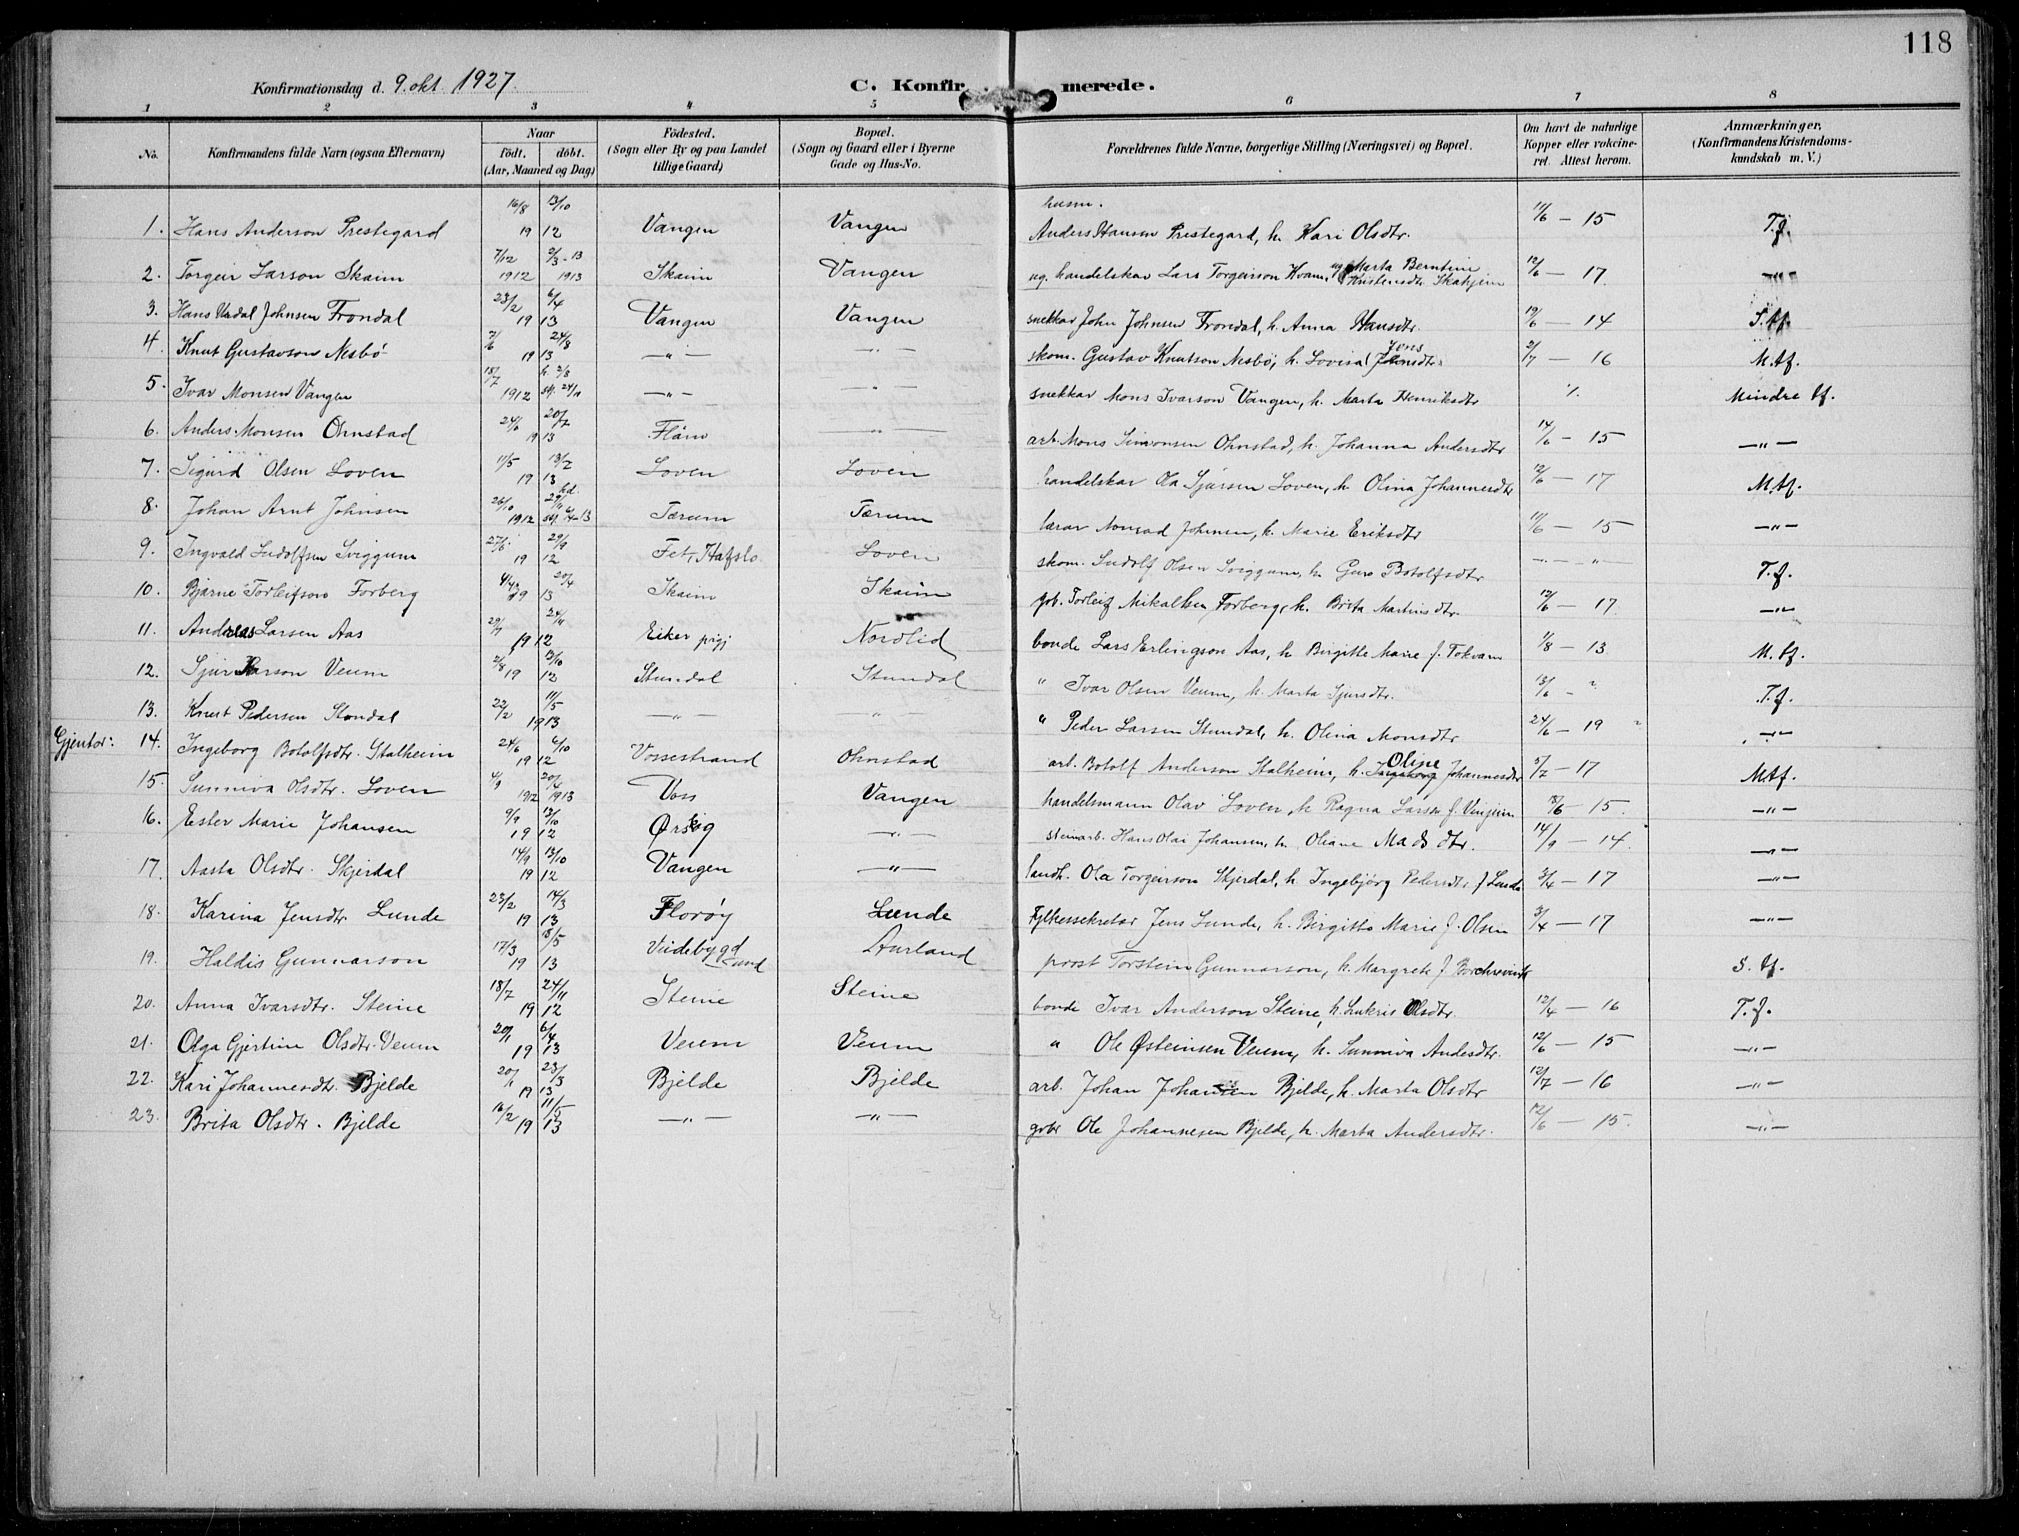 118
Konfirmationsdag d. 9. okt 1927. C. Konfirmerede.
1 2 3 4 5 6 7 8
No. Konfirmandens fulde Navn (ogsaa Efternavn) Naar født, døbt. (Aar, Maaned og Dag) Fødested. (Sogn eller By og paa Landet tillige Gaard) Bopæl. (Sogn og Gaard eller i Byerne Gade og Hus-No. Forældrenes fulde Navne, borgerlige Stilling (Næringsvei) og Bopæl. Om havt de naturlige Kopper eller vakcineret. Attest herom. Anmærkninger. (Konfirmandens Kristendomskundskab m. V.)
1. Hans Anderson Prestegard 16/8 13/10 1912 Vangen Vangen husm. Anders Hansen Prestegard, h. Kari Olsdtr. 11/6 - 15 T.f.
2. Torgeir Larson Skaim 7/12 1912 2/3-13 1913 Skaim Vangen ug. handelskar Lars Torgeirson Kvam, ug Marta Berntine Kristensdtr Skahjem 12/6 - 17. -"-
3. Hans Undal Johnsen Frondal 23/2 6/4 1913 Vangen Vangen snekkar John Johnsen Frondal, h. Anna Hansdtr. 19/6 - 14 S.tf.
4. Knut Gustavson Nesbø 7/6 24/8 1913 -"- -"- skom. Gustav Knutson Nesbø, h. Lovisa Jonsdtr. 2/7 - 16 M.tf.
5. Ivar Monsen Vangen 18/7 1912 h. 2/8 st. 24/11 -"- -"- snekkar Mons Ivarson Vangen, h. Marta Henriksdtr ./. Mindre tf.
6. Anders Monsen Ohnstad 24/6 20/7 1913 Flåm -"- arb. Mons Simonsen Ohnstad, h. Johanna Andersdtr 14/6 - 15 -"-
7. Sigurd Olsen Loven 11/5 13/7 1913 Loven Loven handelskar Ola Sjursen Loven, h. Olina Johannesdtr 12/6 - 17 M.tf.
8. Johan Arnt Johnsen 26/10 1912 hd. 29/11 Tærum Tærum lærar Johnsen, h. Marie Eriksdtr 11/6 - 15 -"-
9. Ingvald Ludolfsen Sviggum 27/6 29/9 1912 Fet, Hafslo Loven skom. Ludolf Olsen Sviggum, h. Guro Botolfsdtr. -"- T.f.
10. Bjarne Torleifson Forberg 20/4 13 Skaim Skaim gbr. Torleif Mikalsen Forberg, h. Brita Martinsdtr. 12/6 - 17. -"-
11. Andreas Larsen Aas 24/11 1912 Eiker pgj Nordlid bonde Lars Erlingson Aas, h. Birgitte Marie f. Tokvam 1/8 - 13 M.tf.
12. Sjur Ivarson Veum 2/8 13/10 1912 Stundal Stundal " Ivar Olsen Veum, h. Marta Sjursdtr. 13/6 - " T.f.
13. Knut Pedersen Stondal 22/2 11/5 1913 -"- -"- " Peder Larsen Stundal, h. Olina Monsdtr 24/6 - 19 -"-
Gjentor: 14. Ingeborg Botolfsdtr. Stalheim 24/6 6/10 1912 Vossestrand Ohnstad arb. Botolf Anderson Stalheim, h. Oline Johannesdtr 5/7 - 17 M.tf.
15. Sunniva Olsdtr. Loven 4/9 1912 20/4 1913 Voss Vangen handelsmann Olav Loven, h. Ragna Larsen f. Vinjum 18/6 - 15. -"-
16. Ester Marie Johansen 9/9 13/10 1912 Ørskog -"- steinarb. Hans Olai Johansen, h. Oliane Madsdtr. 14/9 - 14. -"-
17. Aasta Olsdtr. Skjerdal 14/9 13/10 1912 Vangen -"- landh. Ola Torgeirson Skjerdal, h. Ingebjørg Pedersdtr. f. Lunde 3/4 - 17 -"-
18. Karina Jensdtr. Lunde 23/2 14/3 1913 Florøy Lunde Fylkessekretar Jens Lunde, h. Birgitte Marie f. Olsen 3/4 - 17 -"-
19. Haldis Gunnarson 17/3 18/5 1913 Vindebygd Aurland prost Torstein Gunnarson, h. Margrete f. Borchrevink S.tf.
20. Anna Ivarsdtr. Steine 18/7 24/11 1912 Steine Steine bonde Ivar Anderson Steine, h. Lukris Olsdtr. 12/4 - 16 T.f.
21. Olga Gjertine Olsdtr. Veum 20/1 6/4 1913 Veum Veum " Ole Østeinsen Veum, h. Sunniva Andesdtr. 12/6 - 15 -"-
22. Kari Johannesdtr. Bjelde 20/1 23/3 1913 Bjelde Bjelde arb. Johan Johansen Bjelde, h. Marta Olsdtr 12/7 - 16 -"-
23. Brita Olsdtr. Bjelde 16/2 11/5 1913 -"- -"- gbr Ole Johannesen Bjelde, h. Marta Andersdtr. 12/6 - 15. -"-